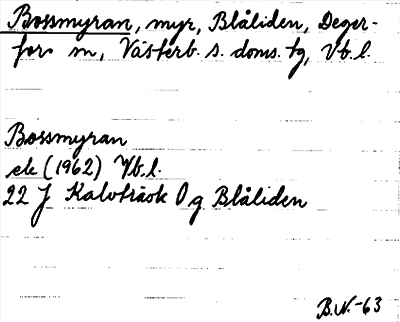 Bossmyran, myr, Blåliden, Deger-
fors sn, Västerb. s. doms. tg, Vb. l.
Bossmyran
ek (1962) Vb. l.
22 J Kalvträsk O g Blåliden
B.N.-63